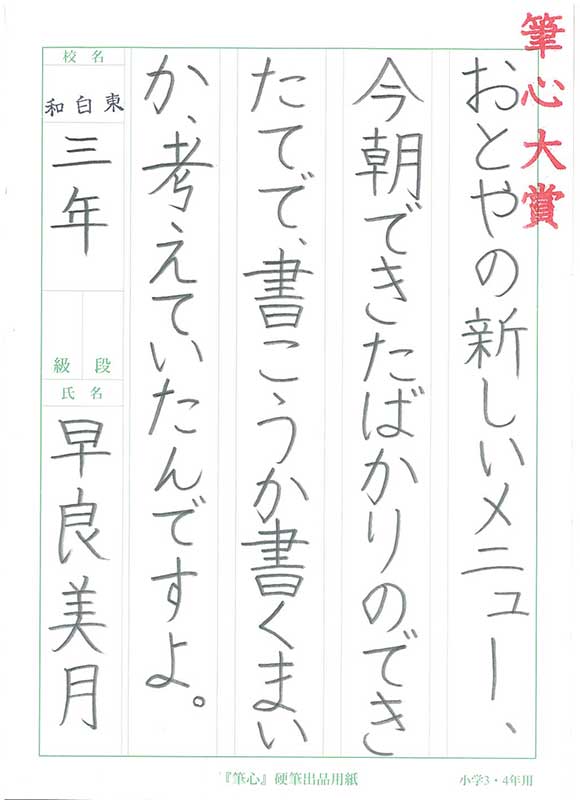 筆心大賞
おとやの新しいメニュー、
今朝できたばかりのでき
たてで、書こうか書くまい
か、考えていたんですよ。
校名
東白和
三年
段
級
氏名
早良美月
『筆心』硬筆出品用紙
小学3・4年用